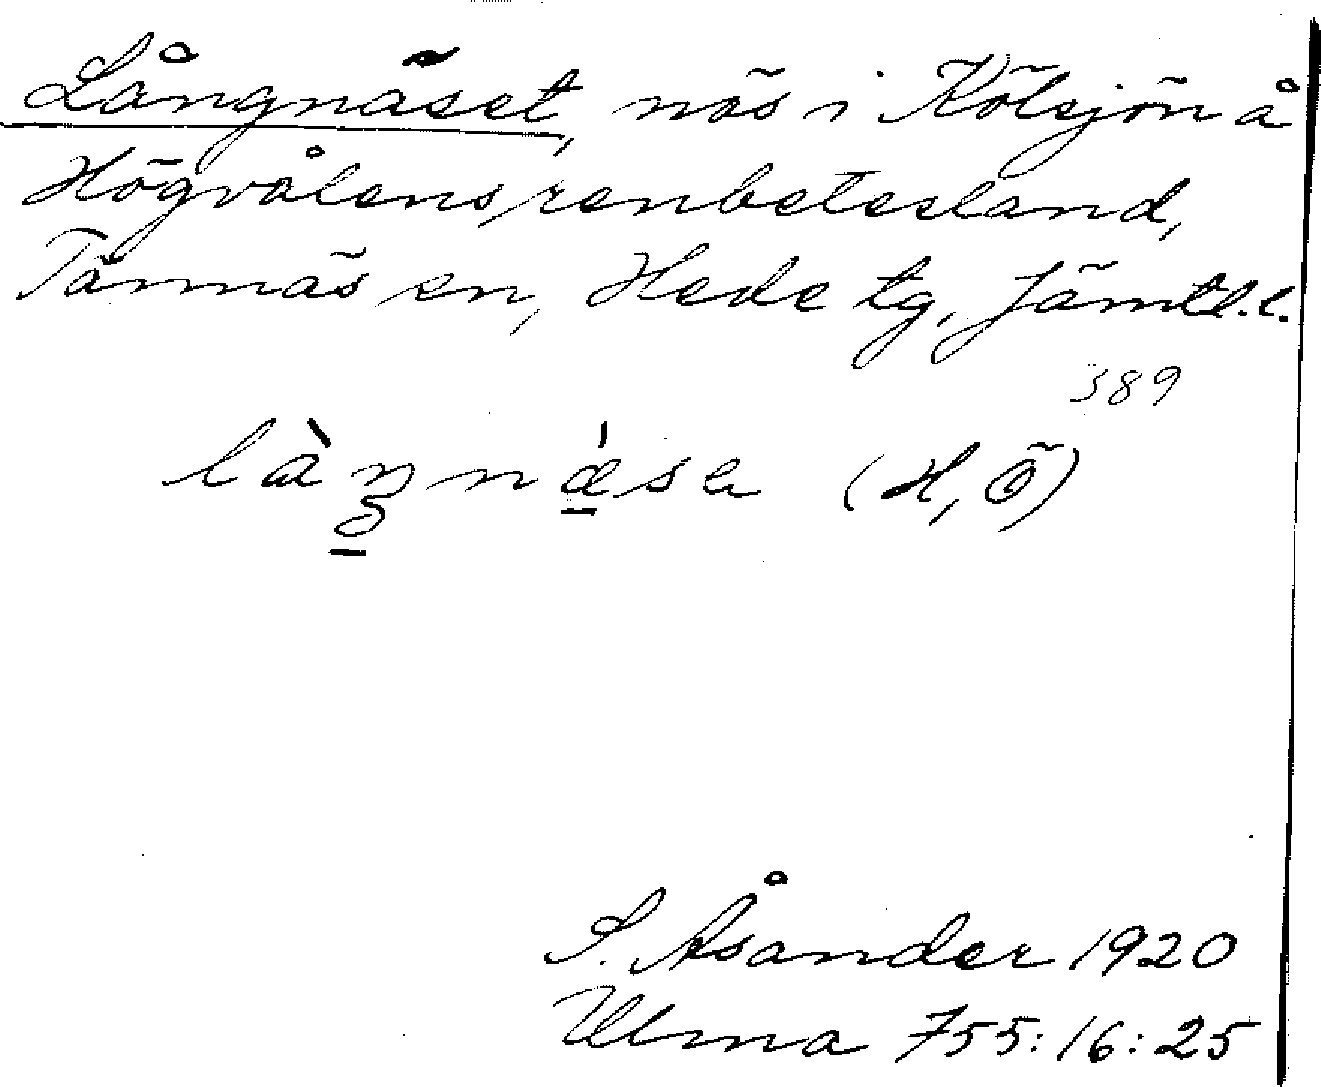 Långnäset, näs i Kölsjön å
Högvålens renbetesland,
Tännäs sn, Hede tg, Jämtl.l.
389
làŋnǽsa (H, Ö)
S. Åsander 1920
Ulma 755:16:25